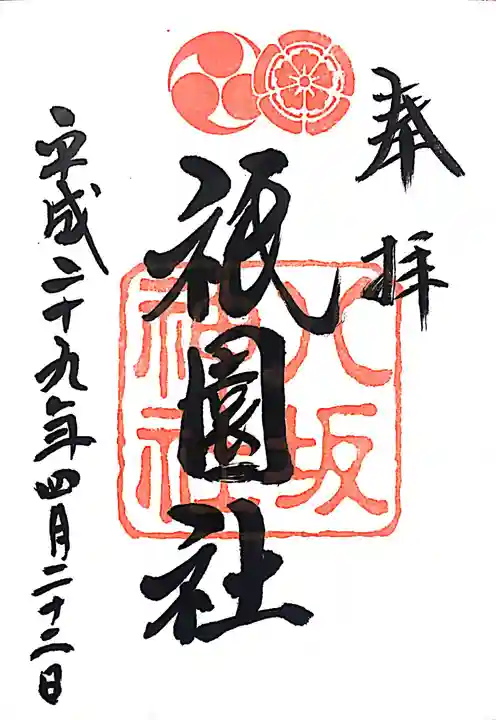 奉拝
八坂
神社
祇園社
平成二十九年四月二十二日